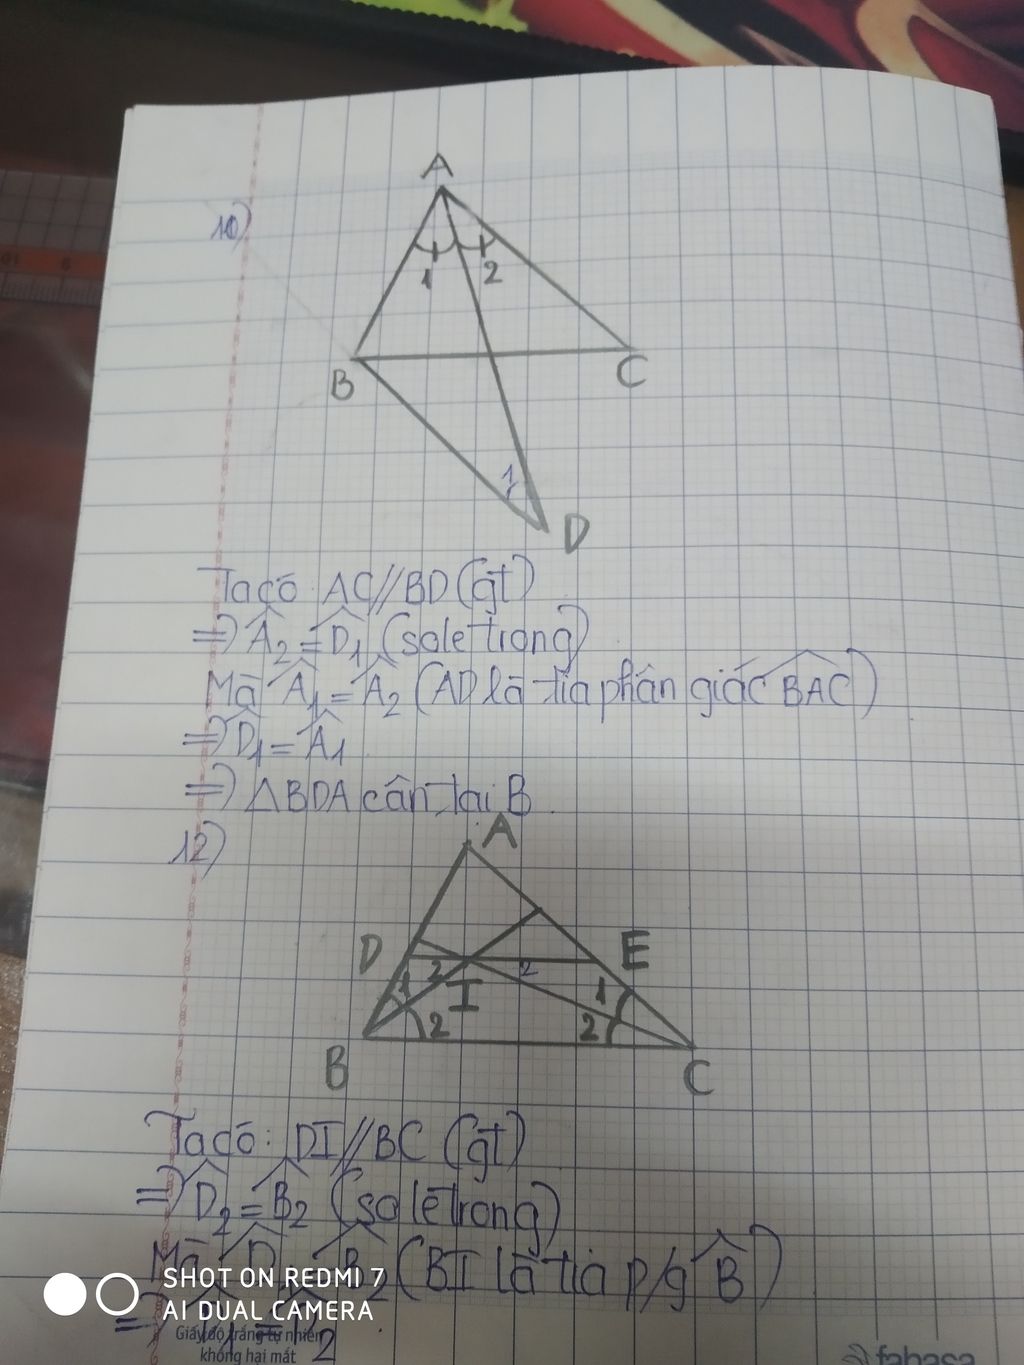 10)
A
1 2
B
C
1
D
Ta có: AC//BD (gt)
=> Â2 = D̂1 (so le trong)
Mà Â1 = Â2 (AD là tia phân giác BAC)
=> D̂1 = Â1
=> △BDA cân tại B.
12)
A
D 2 2 E
1 I 1
2 2
B
C
Ta có: DI//BC (gt)
=> D̂2 = B̂2 (so le trong)
Mà B̂2 (BI là tia p/g B̂)
=>
SHOT ON REDMI 7
AI DUAL CAMERA
Giấy độ trắng tự nhiên
không hại mắt
fahasa